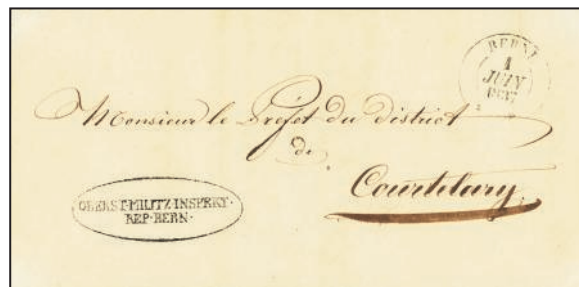 BERNE
1
JUIN
1837
Monsieur le Préfet du district
de
Courtelary
OBERST·MILITZ·INSPEKT·
REP·BERN·